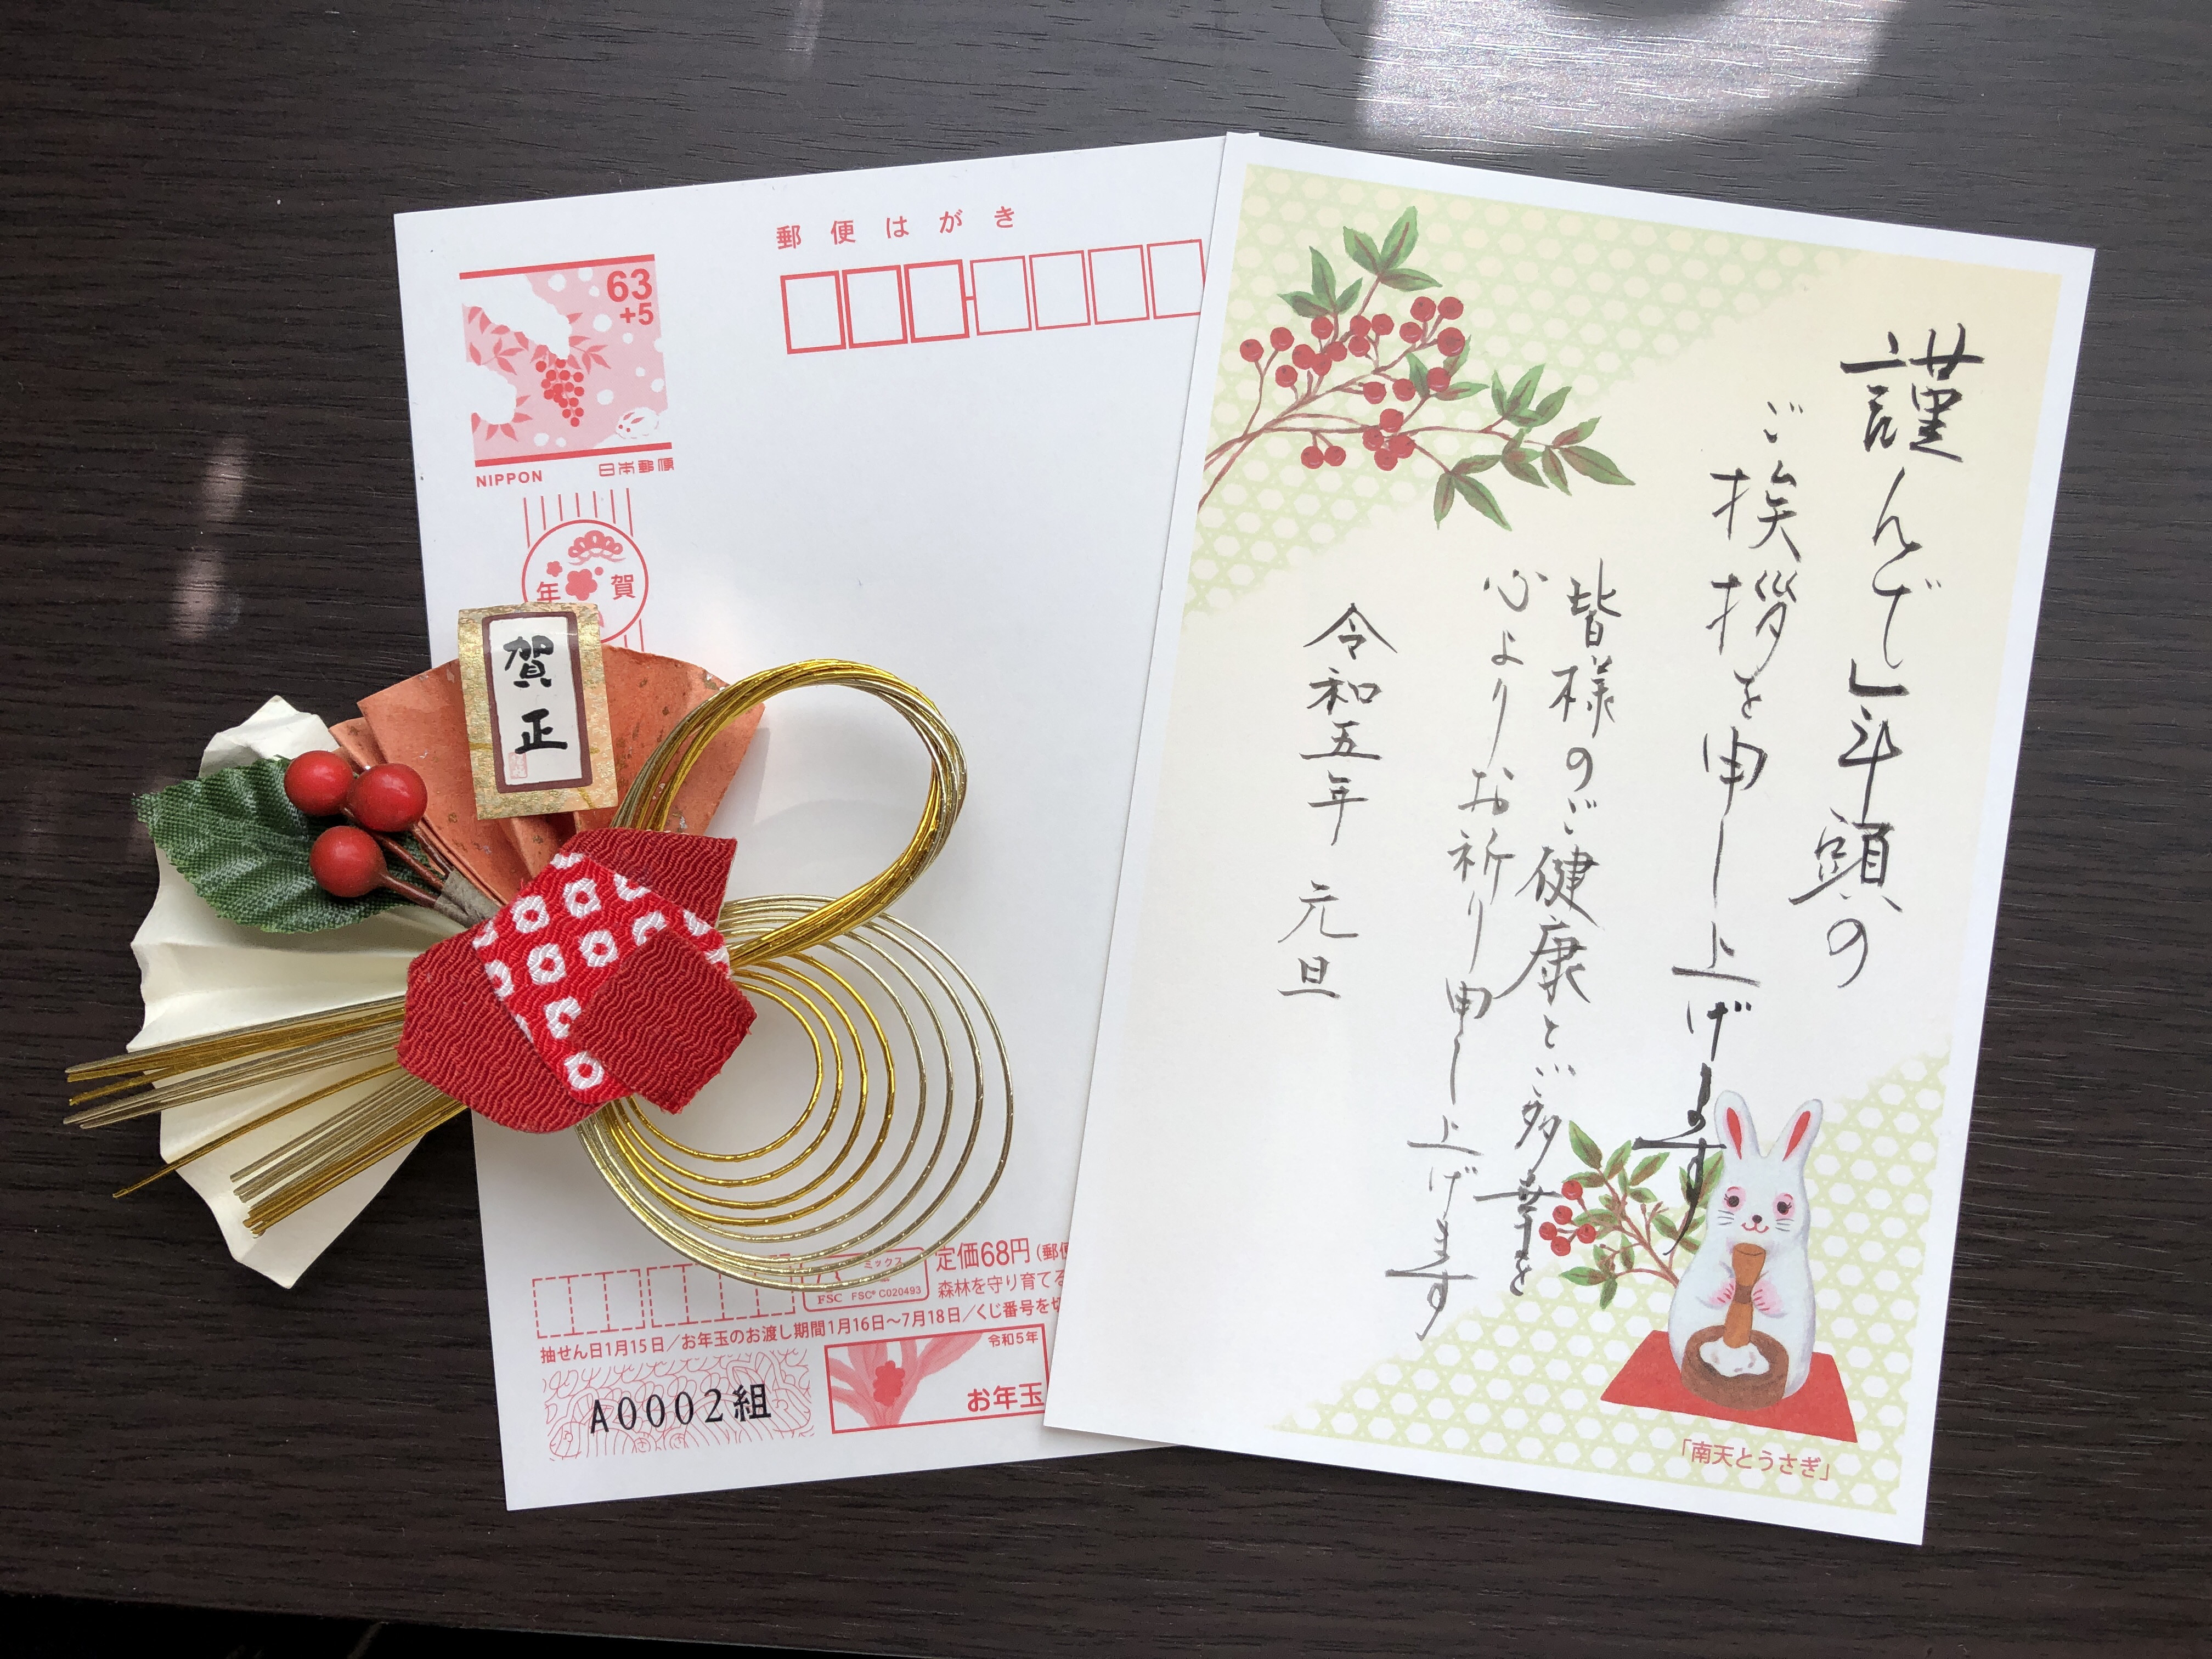 郵便はがき
63
+5
NIPPON 日本郵便
年賀
賀正
ミックス
FSC FSC® C020493
定価68円(郵便
森林を守り育てる
抽せん日1月15日/お年玉のお渡し期間1月16日〜7月18日/くじ番号を切
A0002組
令和5年
お年玉
謹んで年頭の
ご挨拶を申し上げます
皆様のご健康とご多幸を
心よりお祈り申し上げます
令和五年 元旦
「南天とうさぎ」